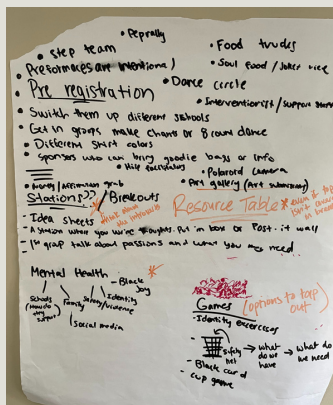 • Peprally
• step team
• Food trucks
• Preformaces are intentional
• Soul food / Joker rice
• Pre registration
• Dance circle
• Interventionist / support
• Switch them up different schools
• Get in groups make charts or 8 count dance
• Different shirt colors
• Sponsors who can bring goodie bags or info
• Polaroid camera
• Art gallery (Art submissions)
Affirmation grab
Stations?? / Breakouts
think about the introverts
Resource Table
even if topic isn't
- Idea sheets
- A station where you write thoughts. Put in box or Post-it wall
- 1st group talk about passions and what you may need
Mental Health
- Black Joy
Schools (How do they support)
Family
Safety/violence
Identity
Social media
Games (options to tap out)
- Identity excercises
-
safety net → what do we have → what do we need
- Black card
- cup game